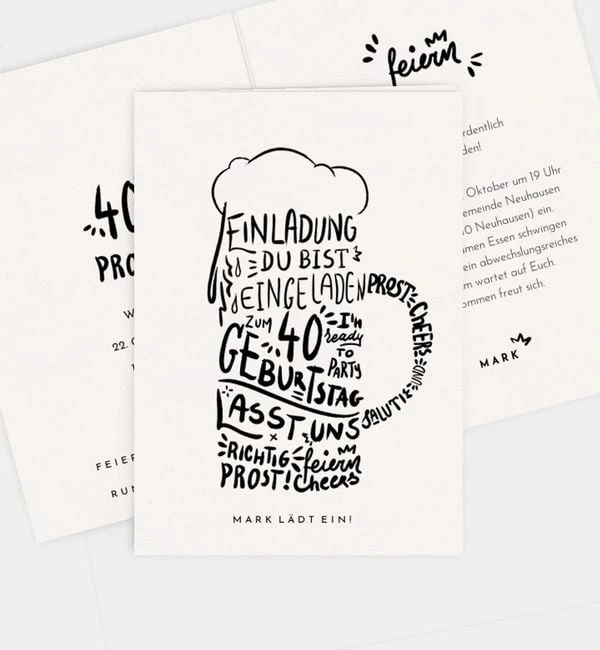 EINLADUNG
DU BIST
EINGELADEN
ZUM 40 I'm
ready
TO
PARTY
GEBURTSTAG
LASST UNS
RICHTIG feiern
PROST! Cheers
PROST Cheers UND SALUT!
MARK LÄDT EIN!
40
22.
feiern
Oktober um 19 Uhr
Neuhausen
Neuhausen) ein.
Essen schwingen
ein abwechslungsreiches
wartet auf Euch.
freut sich.
MARK